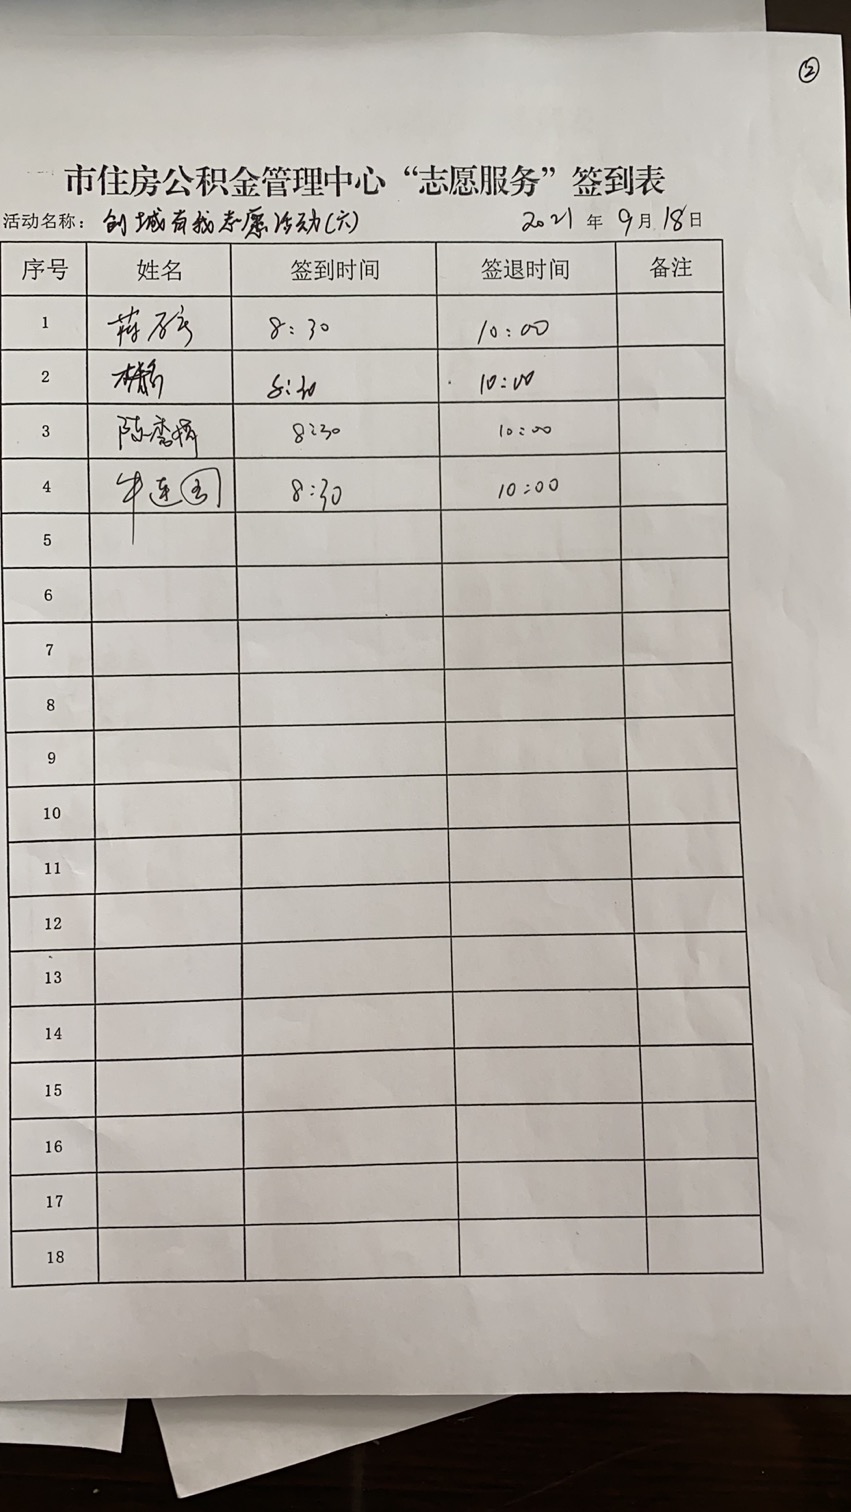 ②
市住房公积金管理中心“志愿服务”签到表
活动名称：创城有我志愿活动(六) 2021年9月18日
序号 姓名 签到时间 签退时间 备注
1 8:30 10:00
2 8:30 10:00
3 陈秀娟 8:30 10:00
4 牛连国 8:30 10:00
5
6
7
8
9
10
11
12
13
14
15
16
17
18